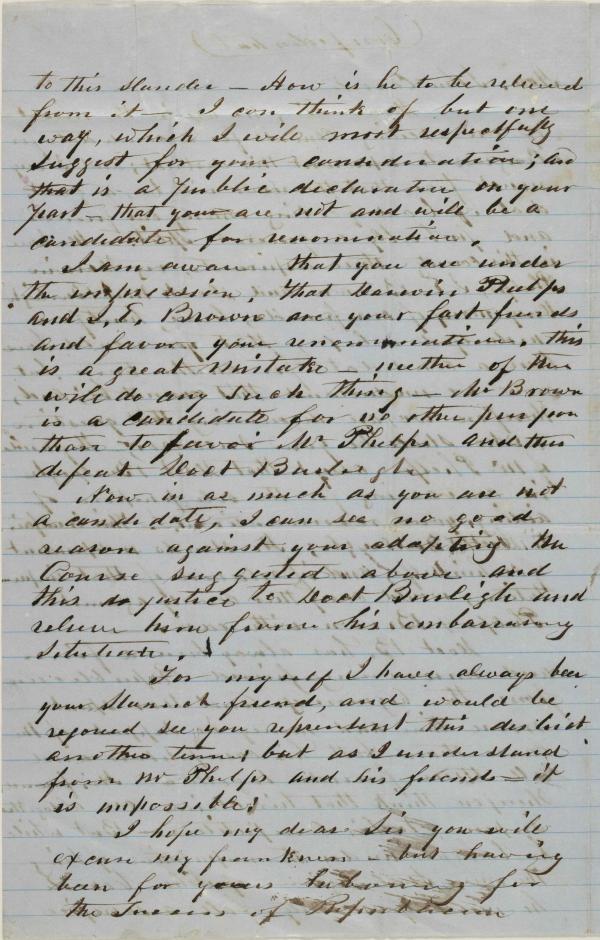 to this slander — How is he to be relieved
from it — I can think of but one
way, which I will most respectfully
suggest for your consideration; and
that is a public declaration on your
part — that you are not and will be a
candidate for renomination.
I am aware that you are under
the impression, that Darwin Phelps
and J. E. Brown are your fast friends
and favor your renomination, this
is a great mistake — neither of them
will do any such thing — Mr Brown
is a candidate for no other purpose
than to favor Mr Phelps and thus
defeat Doct Burleigh
Now in as much as you are not
a candidate, I can see no good
reason against your adapting the
Course suggested above and
thus do justice to Doct Burleigh and
relieve him from his embarrassing
situation.
For myself I have always been
your staunch friend, and would be
rejoiced see you represent this district
another term; but as I understand
from Mr Phelps and his friends — it
is impossible;
I hope my dear Sir you will
excuse my frankness — but having
been for years laboring for
the success of Republican